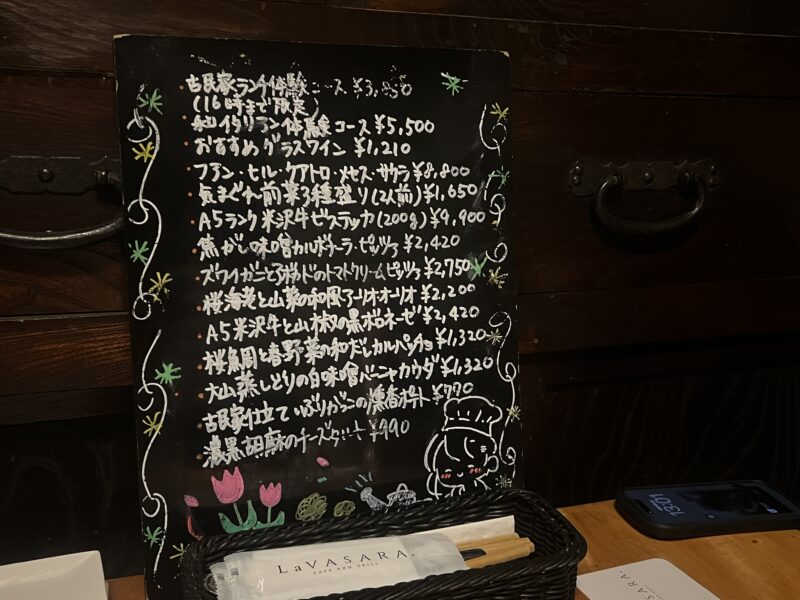 古民家ランチ体験コース ¥3,850
(16時まで限定)
和イタリアン体験コース ¥5,500
おすすめグラスワイン ¥1,210
ファン・ヒル・クアトロ・メセス・サクラ ¥8,800
気まぐれ前菜3種盛り(2人前) ¥1,650
A5ランク米沢牛ビステッカ(200g) ¥9,900
焦がし味噌カルボナーラ・ピッツァ ¥2,420
ズワイガニとアボカドのトマトクリームピッツァ ¥2,750
桜海老と山菜の和風アーリオオーリオ ¥2,200
A5米沢牛と山椒の黒ボロネーゼ ¥2,420
桜鯛と春野菜の和だしカルパッチョ ¥1,320
大山蒸しどりの白味噌バーニャカウダ ¥1,320
古民家仕立て いぶりがっこの燻香ポテト ¥770
濃黒胡麻のチーズタルト ¥990
LaVASARA
CAFE AND GRILL
13:01
SARA